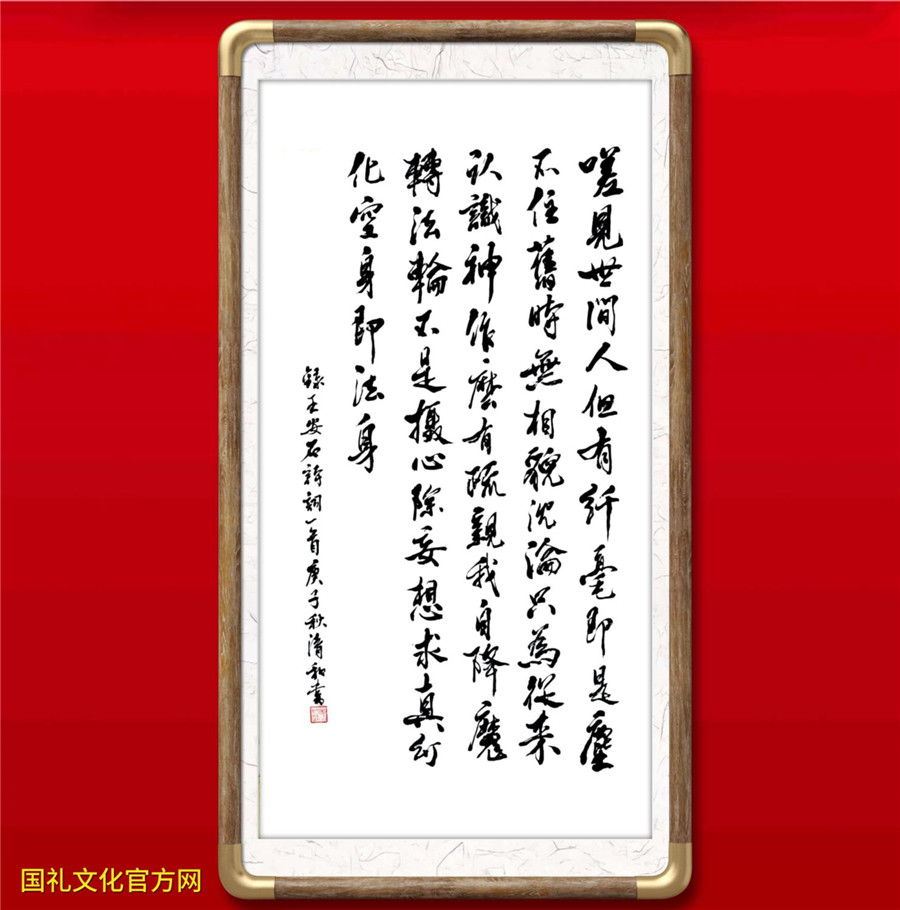 嗟見世間人但有纤毫即是塵
不住舊時無相貌沈淪只為從来
认識神作麽有疏親我自降魔
轉法輪不是摄心除妄想求真幻
化空身即法身
録王安石詩詞一首庚子秋清和書
国礼文化官方网